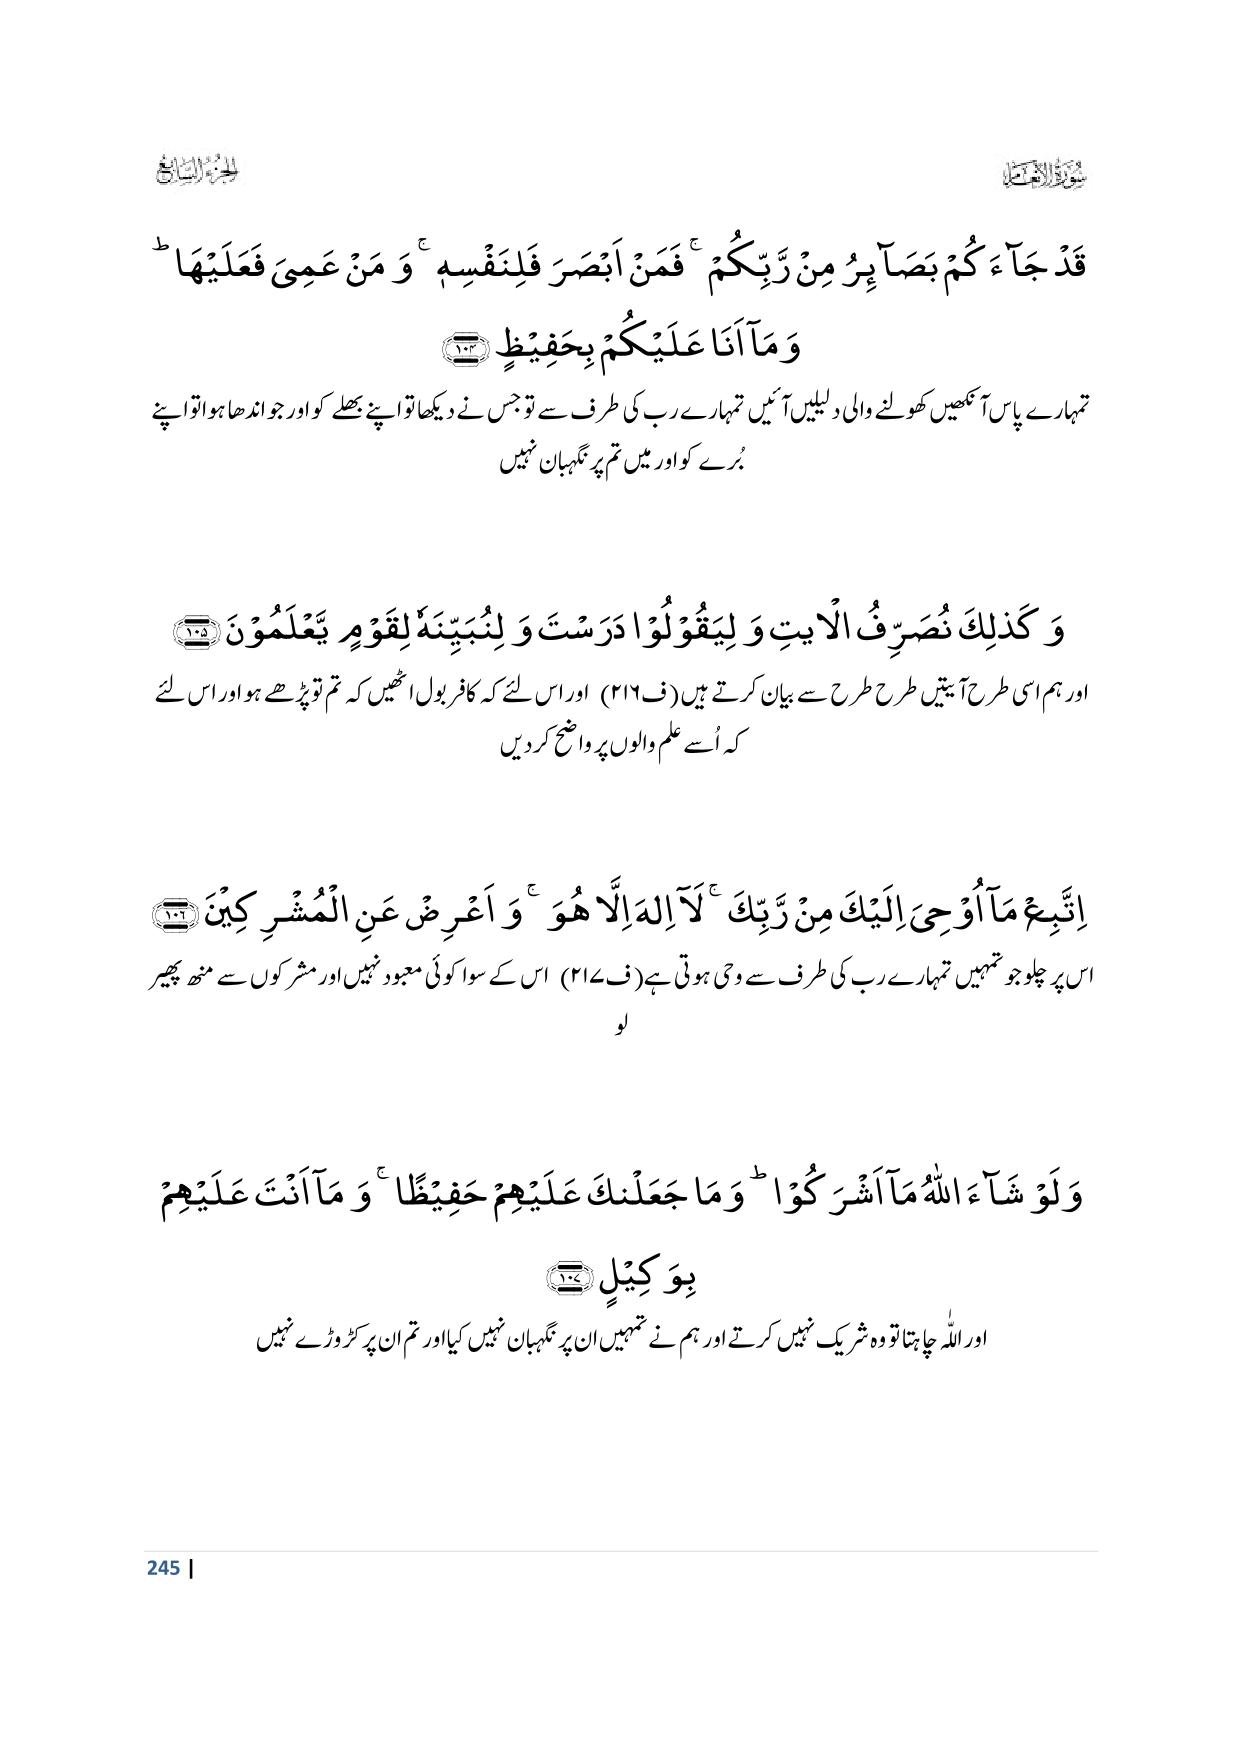 سُوْرَةُ الْاَنْعَام
الجُزْءُ السَّابِعُ
قَدْ جَآءَكُمْ بَصَآئِرُ مِنْ رَّبِّكُمْ ۚ فَمَنْ اَبْصَرَ فَلِنَفْسِهٖ ۚ وَ مَنْ عَمِىَ فَعَلَيْهَا ؕ
وَ مَآ اَنَا عَلَيْكُمْ بِحَفِيْظٍ ﴿۱۰۴﴾
تمہارے پاس آنکھیں کھولنے والی دلیلیں آئیں تمہارے رب کی طرف سے تو جس نے دیکھا تو اپنے بھلے کو اور جو اندھا ہوا تو اپنے
بُرے کو اور میں تم پر نگہبان نہیں
وَ كَذٰلِكَ نُصَرِّفُ الْاٰيٰتِ وَ لِيَقُوْلُوْا دَرَسْتَ وَ لِنُبَيِّنَهٗ لِقَوْمٍ يَّعْلَمُوْنَ ﴿۱۰۵﴾
اور ہم اسی طرح آیتیں طرح طرح سے بیان کرتے ہیں (ف۲۱۶) اور اس لئے کہ کافر بول اٹھیں کہ تم تو پڑھے ہو اور اس لئے
کہ اُسے علم والوں پر واضح کر دیں
اِتَّبِعْ مَآ اُوْحِىَ اِلَيْكَ مِنْ رَّبِّكَ ۚ لَآ اِلٰهَ اِلَّا هُوَ ۚ وَ اَعْرِضْ عَنِ الْمُشْرِكِيْنَ ﴿۱۰۶﴾
اس پر چلو جو تمہیں تمہارے رب کی طرف سے وحی ہوتی ہے (ف۲۱۷) اس کے سوا کوئی معبود نہیں اور مشرکوں سے منھ پھیر
لو
وَ لَوْ شَآءَ اللّٰهُ مَآ اَشْرَكُوْا ؕ وَ مَا جَعَلْنٰكَ عَلَيْهِمْ حَفِيْظًا ۚ وَ مَآ اَنْتَ عَلَيْهِمْ
بِوَكِيْلٍ ﴿۱۰۷﴾
اور اللّٰہ چاہتا تو وہ شریک نہیں کرتے اور ہم نے تمہیں ان پر نگہبان نہیں کیا اور تم ان پر کڑوڑے نہیں
245 |